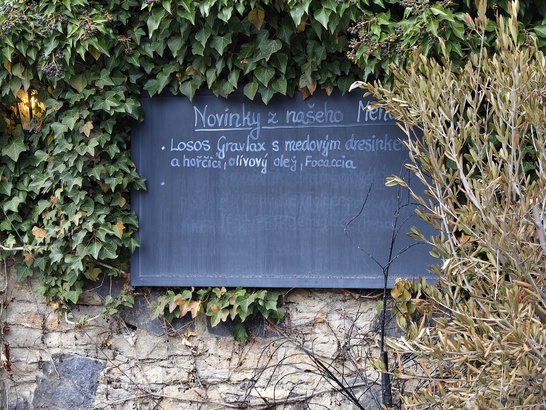 Novinky z našeho Menu
• Losos Gravlax s medovým dresinkem
a hořčicí, olivový olej, Focaccia
•